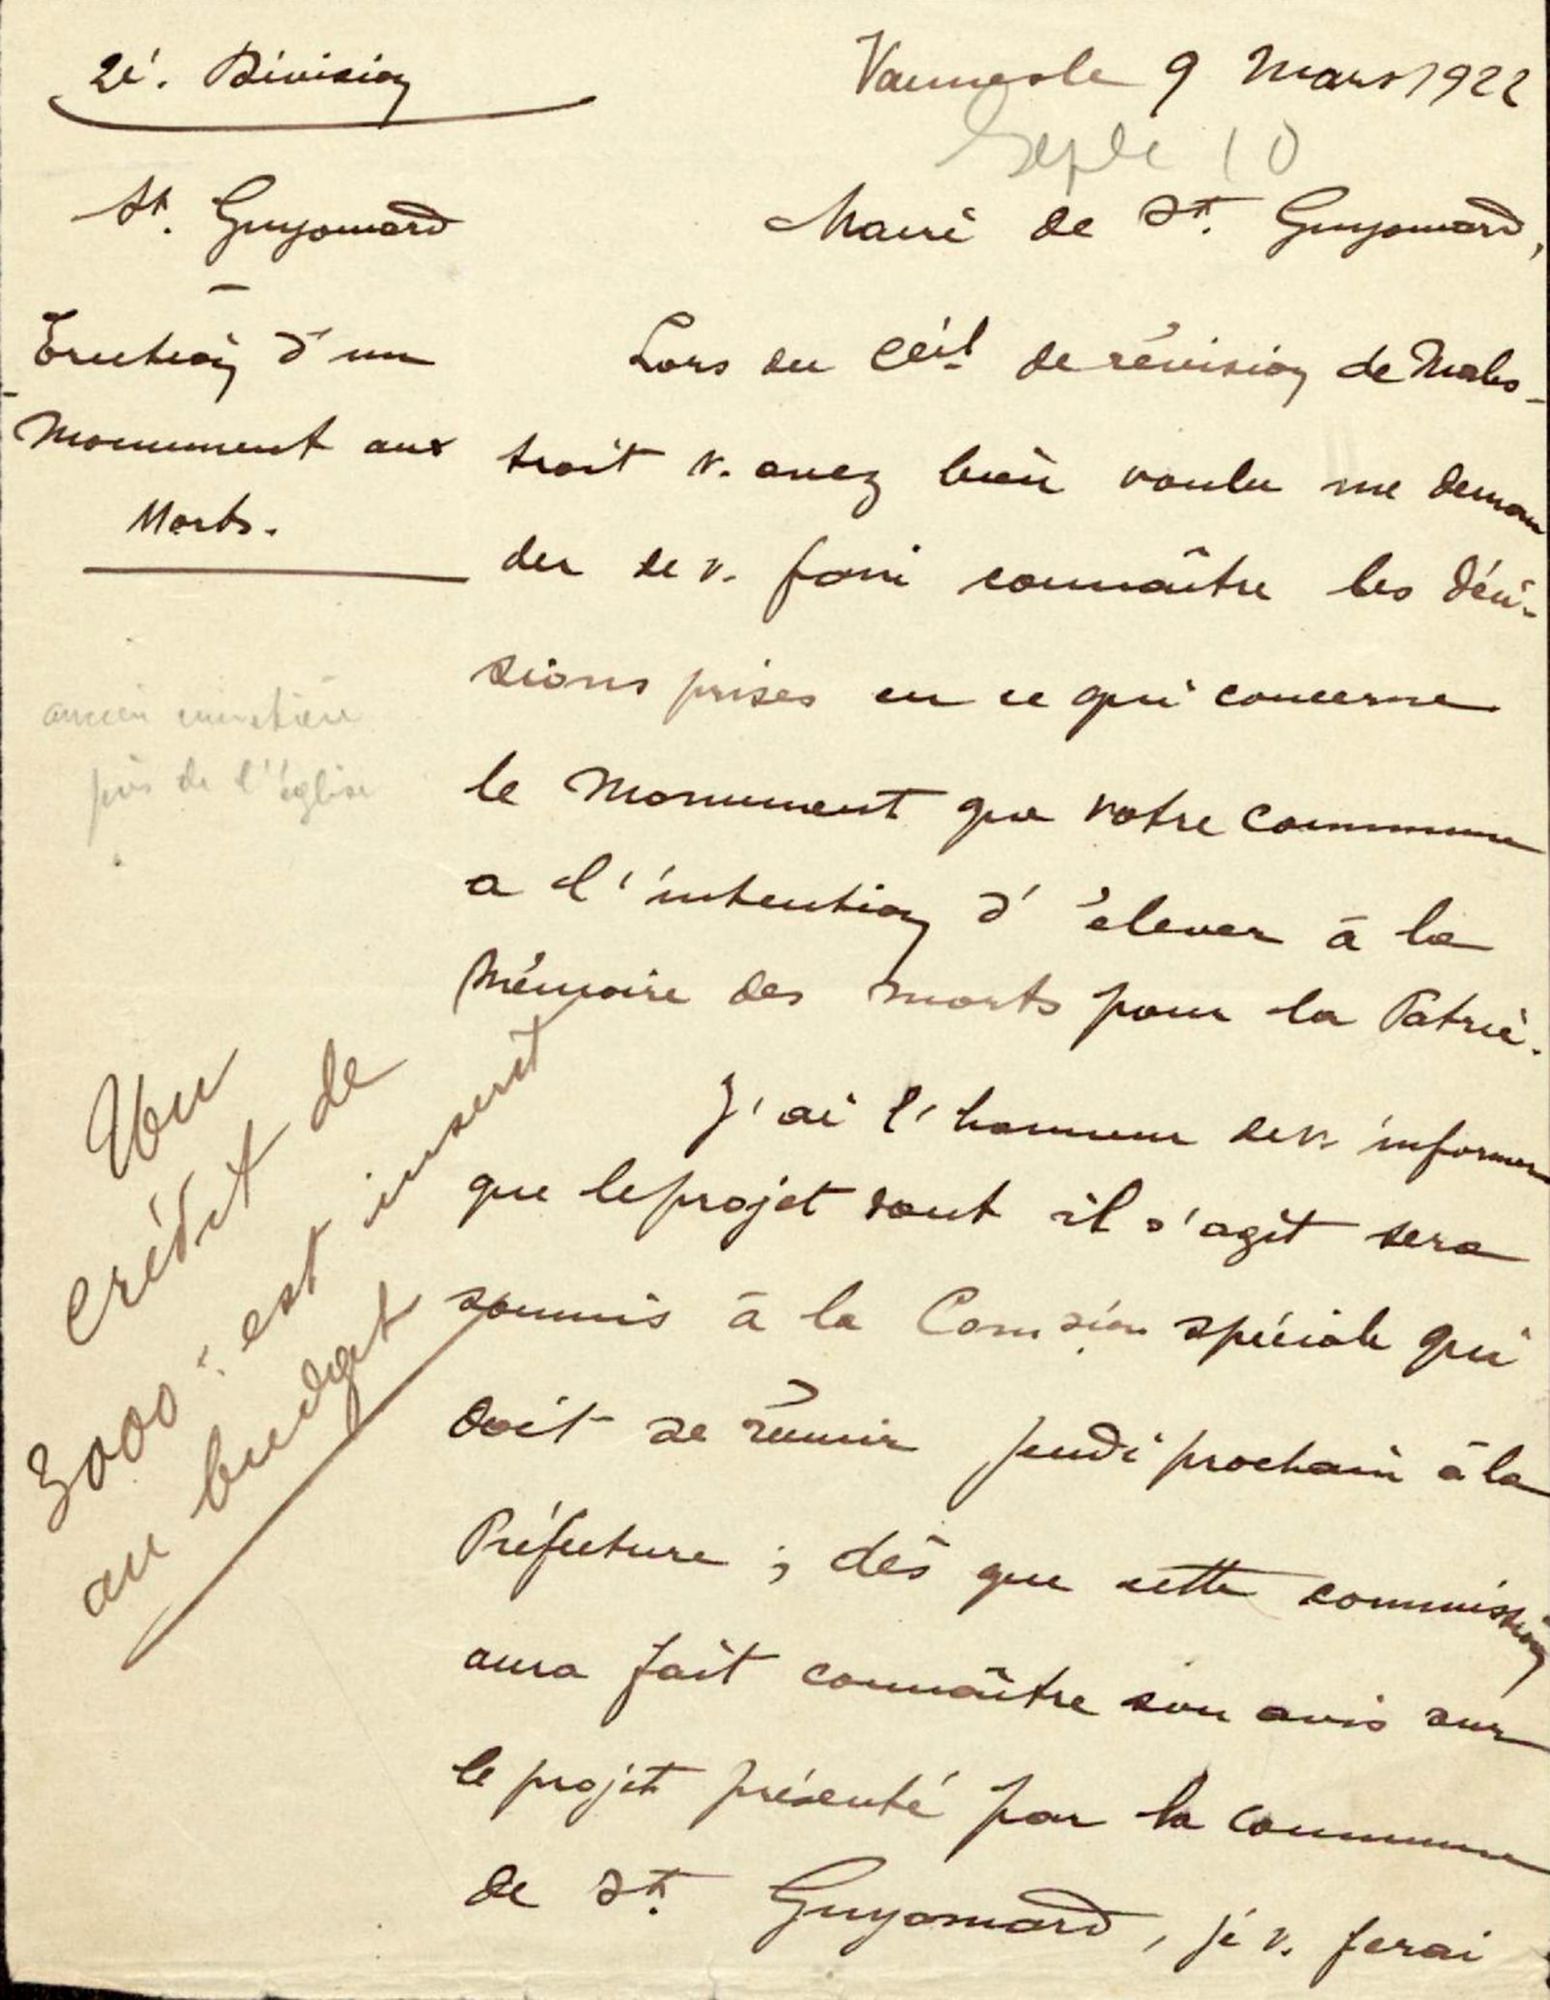 2è. Division
Vannes le 9 Mars 1922
St. Guyomard
Maire de St. Guyomard,
Erection d'un
Monument aux
Morts.
Lors du Ceil de révision de Males-
troit v. avez bien voulu me deman
der de v. faire connaître les déci-
sions prises en ce qui concerne
le Monument que votre Commune
a l'intention d'élever à la
Mémoire des morts pour la Patrie.
ancien cimetière
près de l'église
J'ai l'honneur de v. informer
que le projet dont il s'agit sera
soumis à la Comsion spéciale qui
doit se réunir jeudi prochain à la
Préfecture ; dès que cette commission
aura fait connaître son avis sur
le projet présenté par la Commune
de St. Guyomard, je v. ferai
Un
crédit de
3000 f. est inscrit
au budget